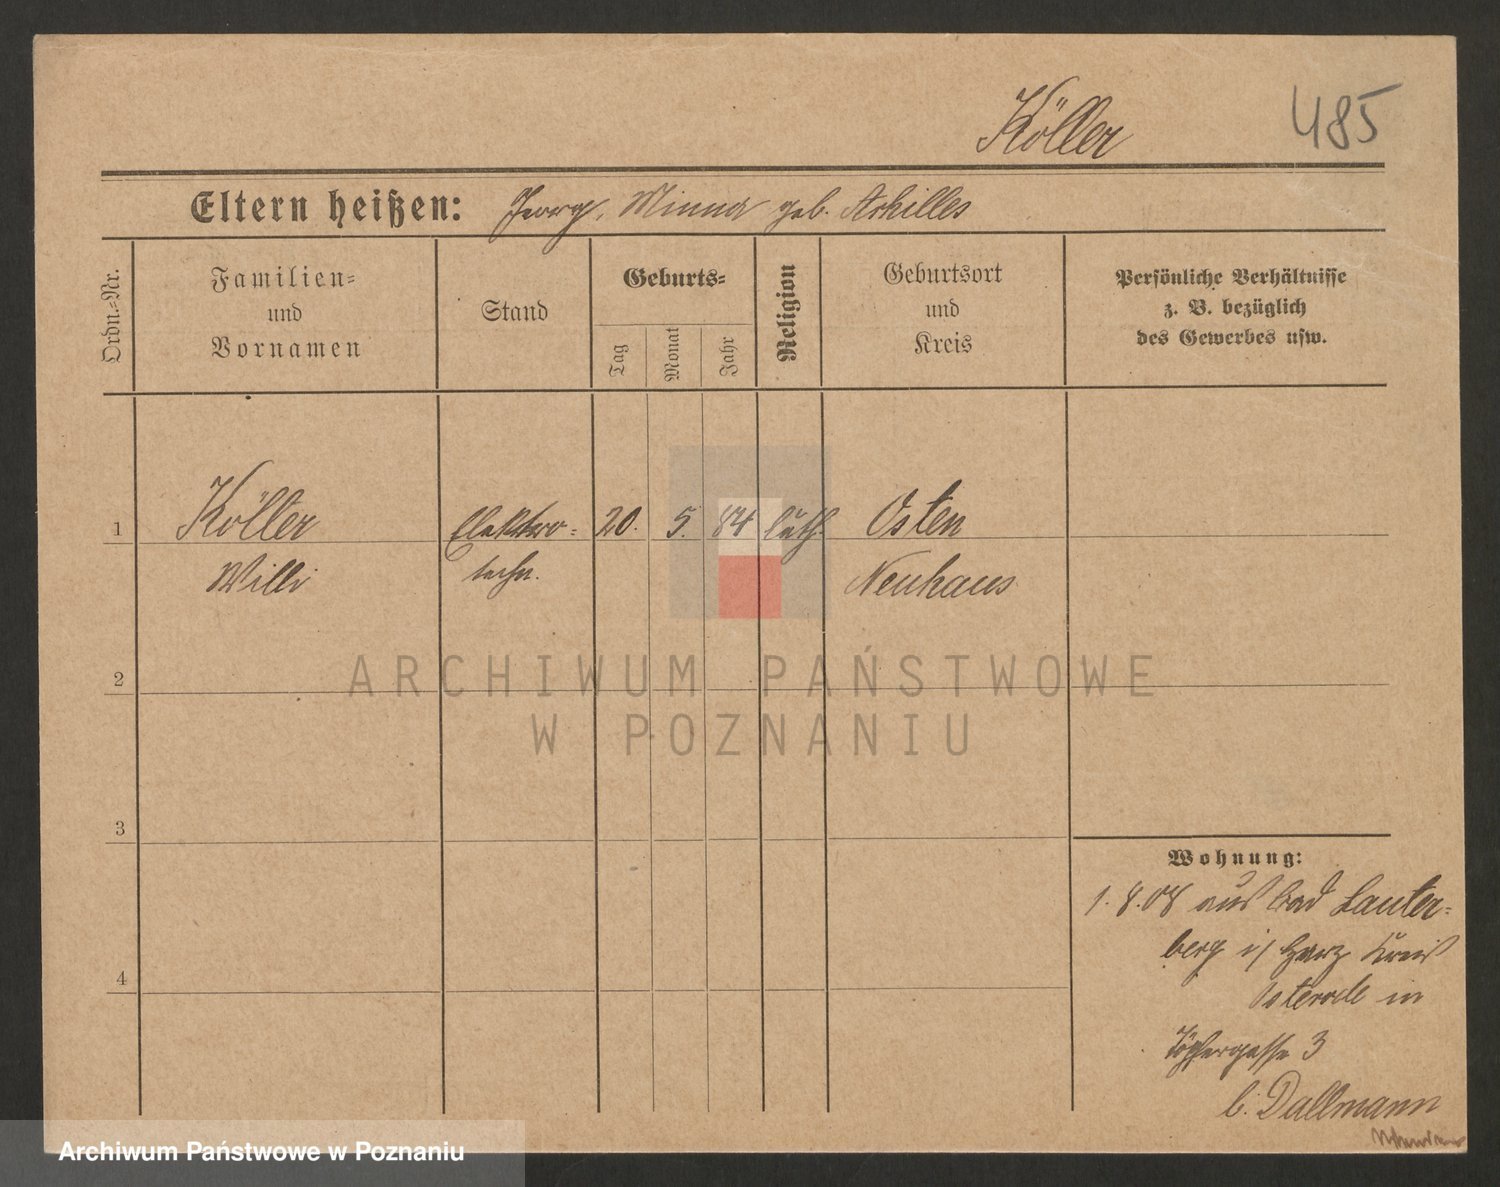 Köller
485
Eltern heißen: Georg, Minna geb. Achilles
Ordn.=Nr.
Familien=
und
Vornamen
Stand
Geburts=
Tag
Monat
Jahr
Religion
Geburtsort
und
Kreis
Persönliche Verhältnisse
z. B. bezüglich
des Gewerbes usw.
1
Köller
Willi
Elektro=
techn.
20.
5.
84
luth.
Osten
Neuhaus
2
3
4
ARCHIWUM PAŃSTWOWE
W POZNANIU
Wohnung:
1.8.08 aus Bad Lauter=
berg i/ Harz Kreis
Osterode in
Töpfergasse 3
b. Dallmann
Archiwum Państwowe w Poznaniu